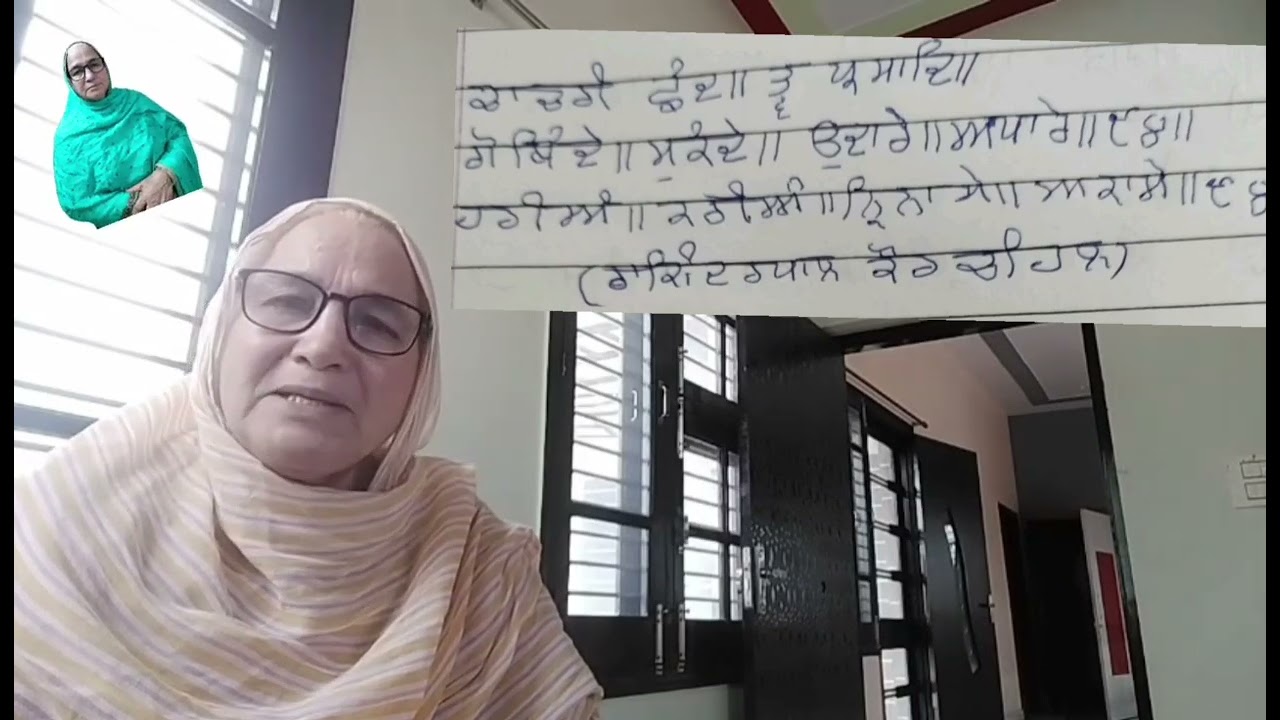 ਚਾਚਰੀ ਛੰਦ॥ ਤ੍ਵ ਪ੍ਰਸਾਦਿ॥
ਗੋਬਿੰਦੇ॥ ਮੁਕੰਦੇ॥ ਉਦਾਰੇ॥ ਅਪਾਰੇ॥੯੪॥
ਹਰੀਅੰ॥ ਕਰੀਅੰ॥ ਨ੍ਰਿਨਾਮੇ॥ ਅਕਾਮੇ॥੯੫
(ਰਾਜਿੰਦਰਪਾਲ ਕੌਰ ਚੀਹਲ)